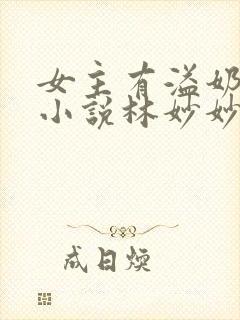 女主有溢奶
小說林妙妙
成日煥